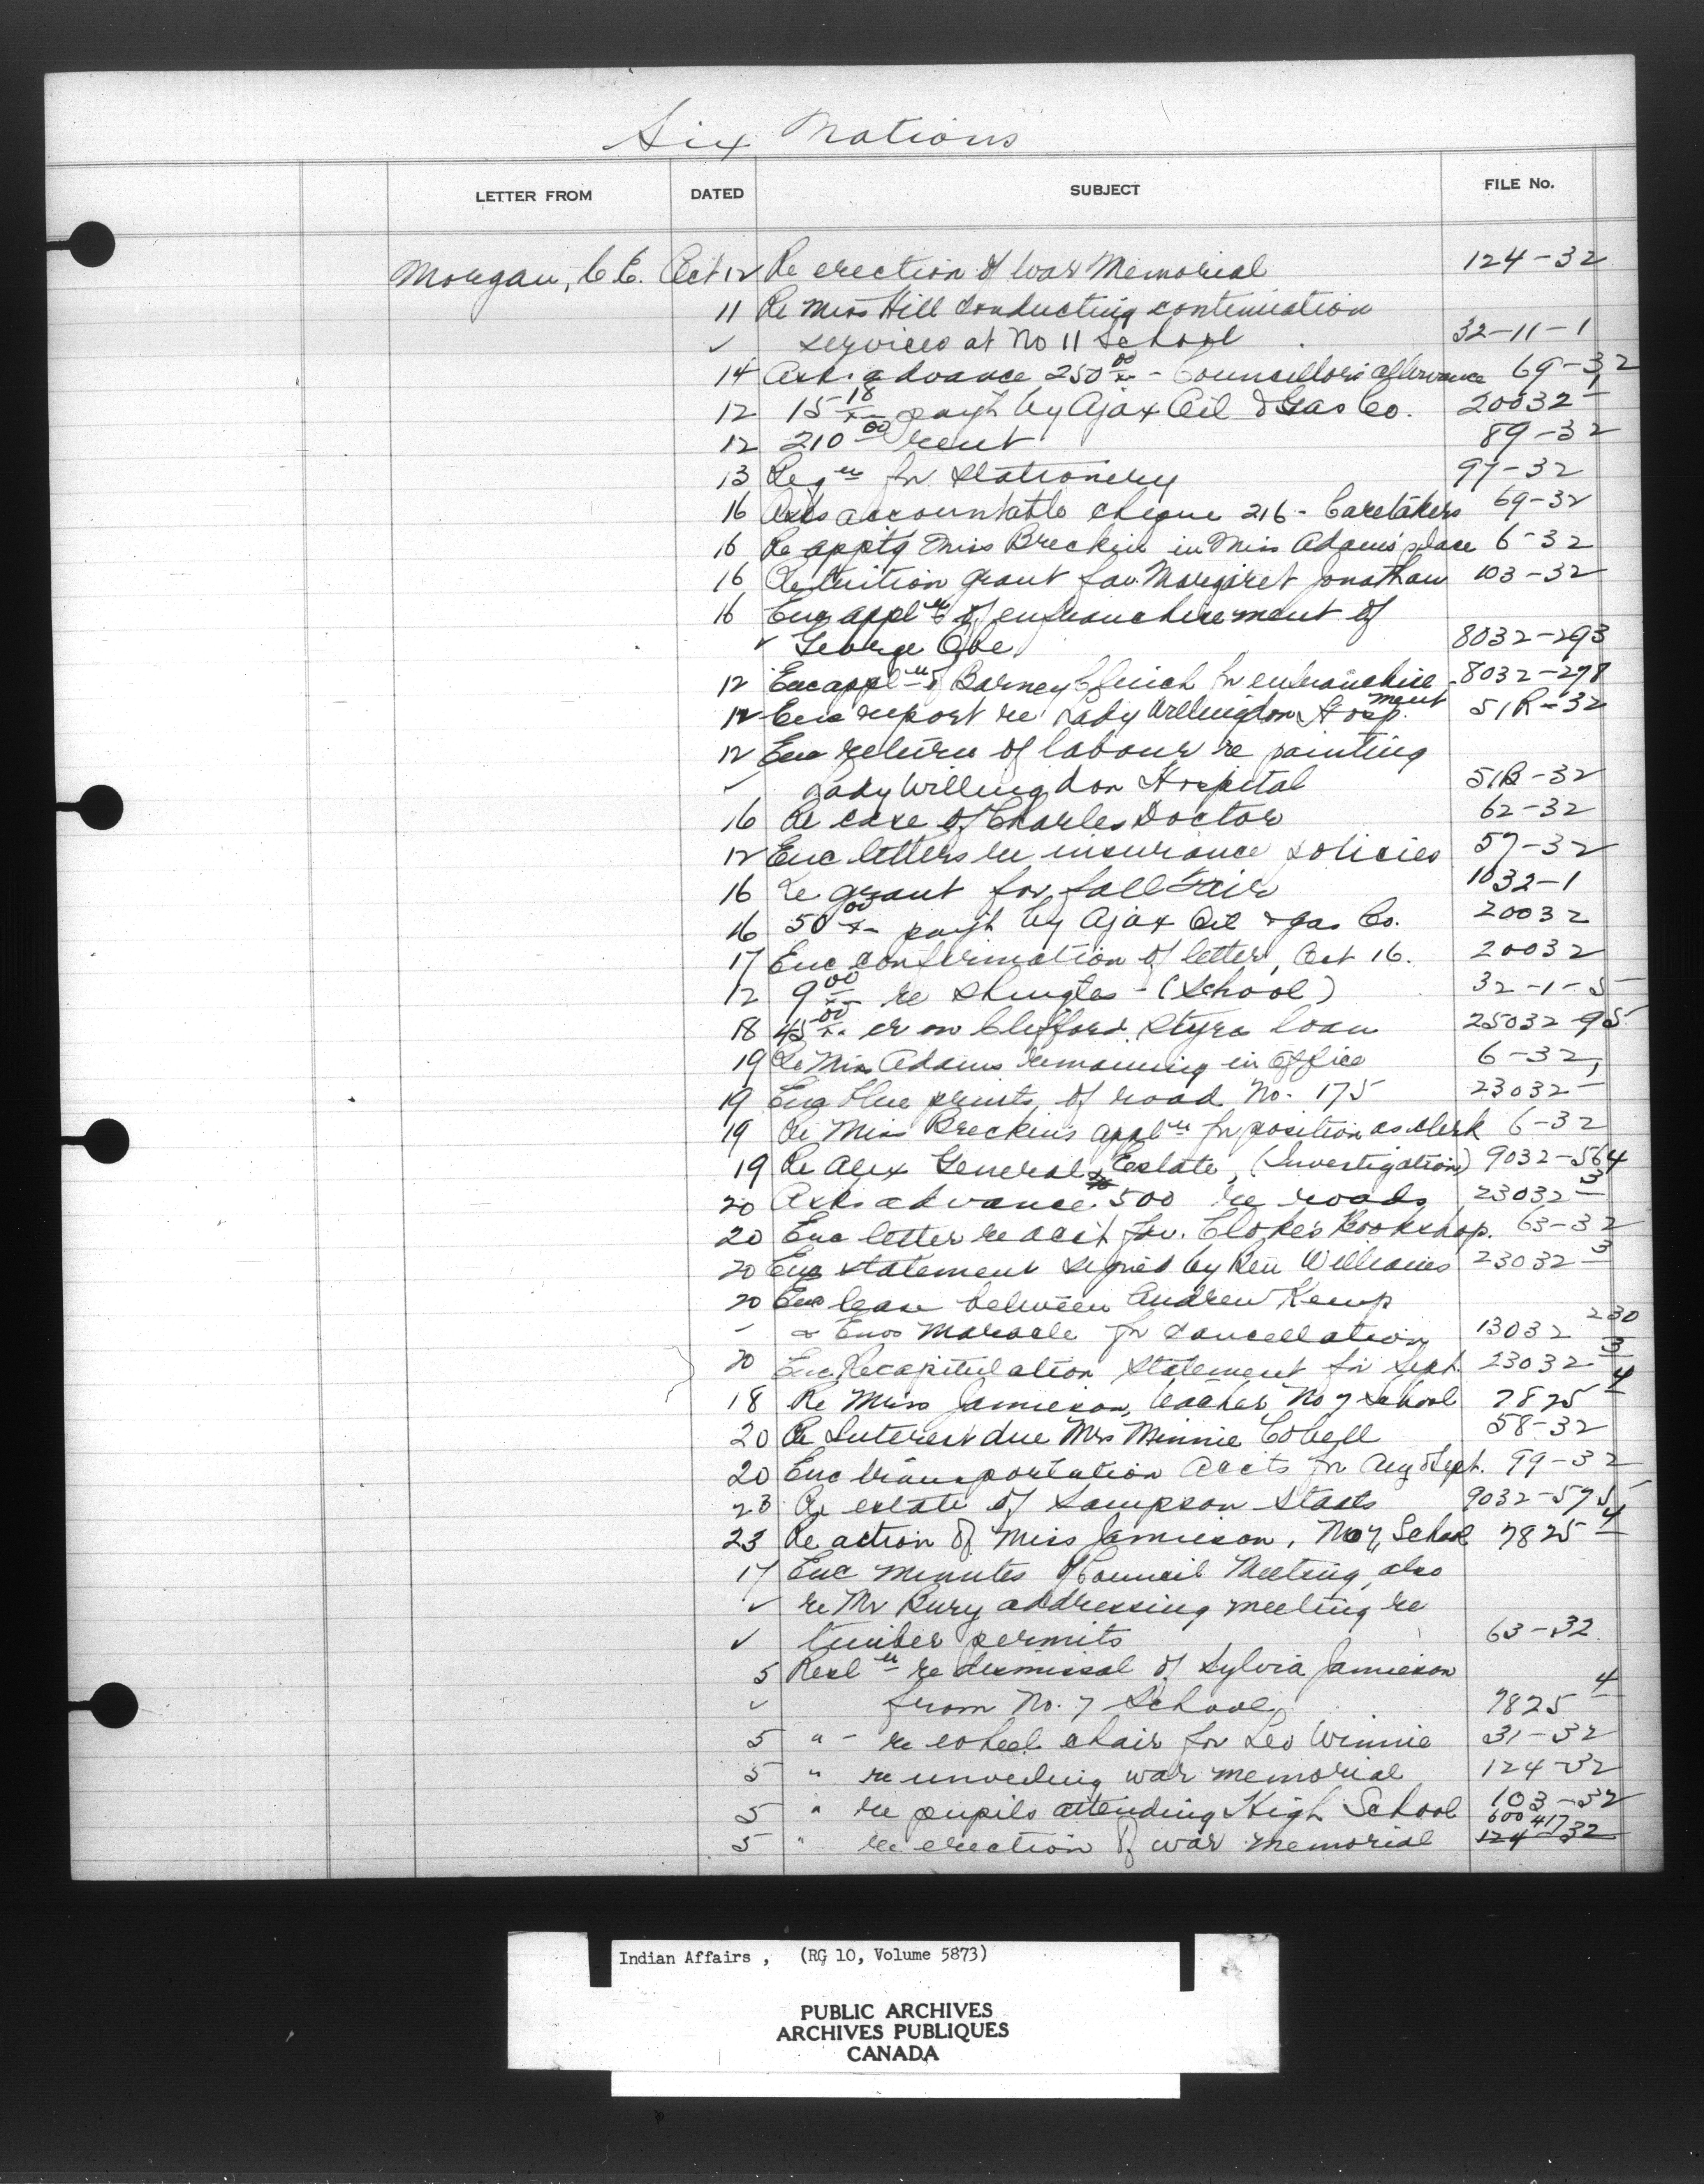 Six Nations
LETTER FROM DATED SUBJECT FILE No.
Morgan, C.E. Oct 12 Re erection of War Memorial 124-32
11 Re Miss Hill conducting continuation
✓ services at No 11 School 32-11-1
14 Asks advance 250 00/xx - Councillors allowance 69-32
12 15 18/xx pay't by Ajax Oil & Gas Co. 20032-1
12 210 00 rent 89-32
13 Reqn for stationery 97-32
16 Asks accountable cheque 216 - Caretakers 69-32
16 Re apptg Miss Breckin in Miss Adams' place 6-32
16 Re tuition grant fav. Margaret Jonathan 103-32
16 Enc appln of enfranchisement of
✓ George 8032-293
12 Enc appln of Barney for enfranchisement 8032-278
12 Enc report re Lady Willingdon Hosp. 51R-32
12 Enc return of labour re painting
✓ Lady Willingdon Hospital 51B-32
16 Re case of Charles Doctor 62-32
12 Enc letters re insurance policies 57-32
16 Re grant for fall Fair 1032-1
16 50 00/xx pay't by Ajax Oil & gas Co. 20032
17 Enc confirmation of letter, Oct 16. 20032
12 9 00/xx re shingles - (School) 32-1-5
18 45 00/xx cr on Clifford Styres loan 25032-95
19 Re Miss Adams remaining in Office 6-32
19 Enc blue prints of road No. 175 23032-1
19 Re Miss Breckin's appln for position as clerk 6-32
19 Re Alex General Estate, (Investigation) 9032-564
20 Asks advance 500 re roads 23032-3
20 Enc letter re acct fav. Cloke's Bookshop. 63-32
20 Enc statement signed by Williams 23032-3
20 Enc lease between Andrew Kemp
- & Enos Maracle for cancellation 13032-230
20 Enc Recapitulation Statement for Sept. 23032-3
18 Re Miss Jamieson, teacher No 7 School 7825-4
20 Re Interest due Mrs Minnie Cobell 58-32
20 Enc transportation accts for Aug & Sept. 99-32
23 Re estate of Sampson Staats 9032-575
23 Re action of Miss Jamieson, No 7, School 7825-4
17 Enc minutes of Council Meeting, also
✓ re Mr Bury addressing meeting re
✓ timber permits 63-32
5 Resln re dismissal of Sylvia Jamieson
✓ from No. 7 School 7825-4
5 " - re wheel chair for Leo Winnie 31-32
5 " re unveiling war memorial 124-32
5 " re pupils attending High School 103-32
5 " re erection of war memorial 600417 124-32
Indian Affairs , (RG 10, Volume 5873)
PUBLIC ARCHIVES
ARCHIVES PUBLIQUES
CANADA